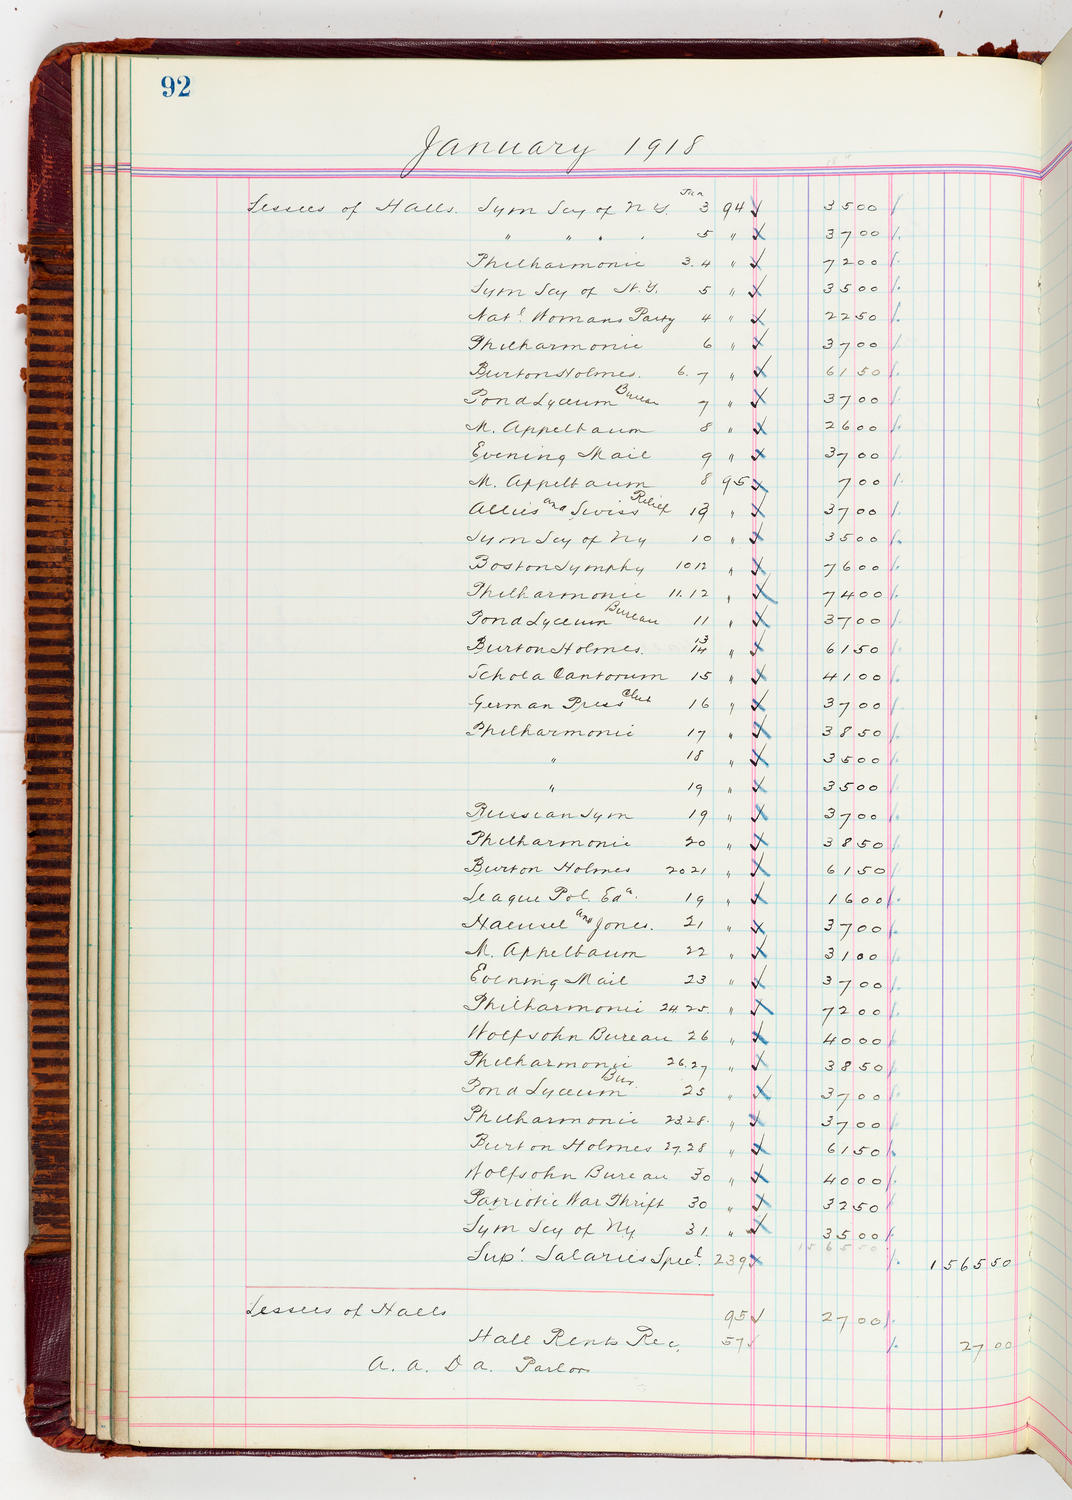 92
January 1918
Lessees of Halls. Sym Socy of N.Y. Jan 3 94 3500
" " " " 5 " 3700
Philharmonic 3.4 " 7200
Sym Socy of N.Y. 5 " 3500
Natl Womans Party 4 " 2250
Philharmonic 6 " 3700
Burton Holmes. 6.7 " 6150
Pond Lyceum Bureau 7 " 3700
M. Appelbaum 8 " 2600
Evening Mail 9 " 3700
M. Appelbaum 8 95 700
Allies and Swiss Relief 13 " 3700
Sym Socy of Ny 10 " 3500
Boston Symphy 10 12 " 7600
Philharmonic 11.12 " 7400
Pond Lyceum Bureau 11 " 3700
Burton Holmes. 13 14 " 6150
Schola Cantorum 15 " 4100
German Press Club 16 " 3700
Philharmonic 17 " 3850
" 18 " 3500
" 19 " 3500
Russian Sym 19 " 3700
Philharmonic 20 " 3850
Burton Holmes 20 21 " 6150
League Pol. Eda. 19 " 1600
Haensel and Jones. 21 " 3700
M. Appelbaum 22 " 3100
Evening Mail 23 " 3700
Philharmonic 24 25. " 7200
Wolfsohn Bureau 26 " 4000
Philharmonic 26.27 " 3850
Pond Lyceum Bur. 25 " 3700
Philharmonic 23.28. " 3700
Burton Holmes 27.28 " 6150
Wolfsohn Bureau 30 " 4000
Patriotic War Thrift 30 " 3250
Sym Socy of Ny 31. " 3500
156550
Supt. Salaries Specl. 239 156550
Lessees of Halls 95 2700
Hall Rents Rec. 57 2700
A. A. D a. Parlor